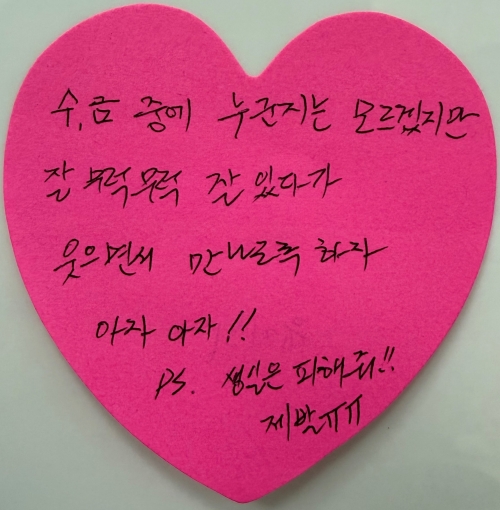 수,금 중에 누군지는 모르겠지만
잘 무럭무럭 잘 있다가
웃으면서 만나도록 하자
아자 아자!!
PS. 생일은 피해줘!!
제발ㅠㅠ